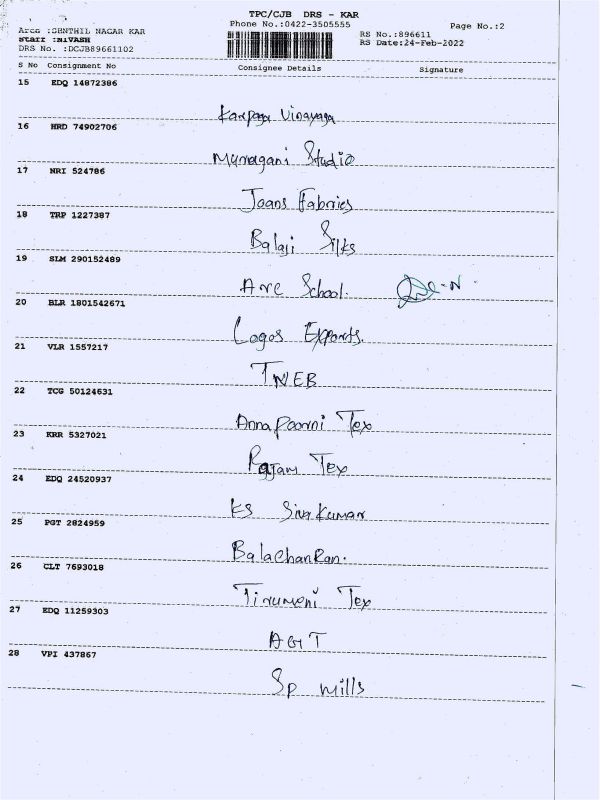 TPC/CJB DRS - KAR
Phone No.:0422-3505555
Page No.:2
Area :SENTHIL NAGAR KAR
Staff :NIVASH
DRS No. :DCJB89661102
RS No.:896611
RS Date:24-Feb-2022
S No Consignment No Consignee Details Signature
15 EDQ 14872386
Karpaga Vinayaga
16 HRD 74902706
Murragani Studio
17 NRI 524786
Joans Fabrics
18 TRP 1227387
Balaji Silks
19 SLM 290152489
School.
20 BLR 1801542671
Logos Exports.
21 VLR 1557217
TNEB
22 TCG 50124631
Annapoorni Tex
23 KRR 5327021
Rajam Tex
24 EDQ 24520937
KS Siva Kumar
25 PGT 2824959
26 CLT 7693018
Tirumani Tex
27 EDQ 11259303
AGT
28 VPI 437867
Sp mills